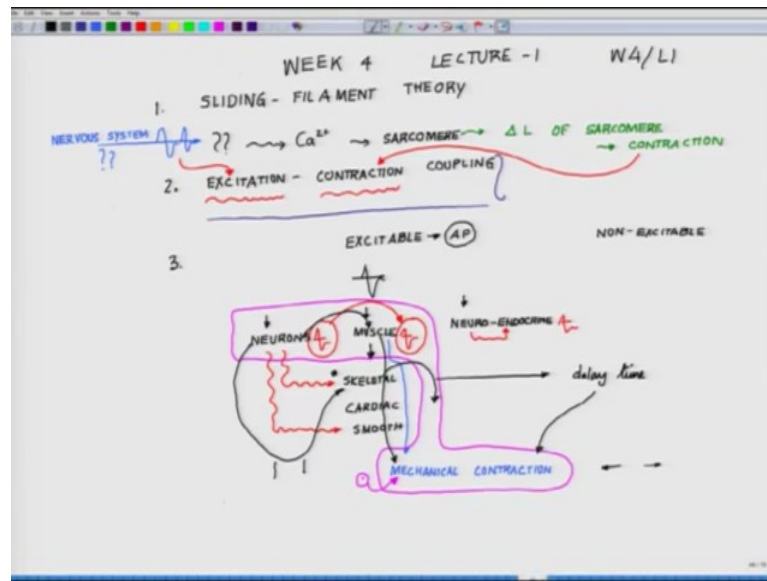 WEEK 4 LECTURE -1 W4/L1
1. SLIDING - FILAMENT THEORY
NERVOUS SYSTEM ?? ~> Ca²⁺ → SARCOMERE → Δ L OF SARCOMERE
?? → CONTRACTION
2. EXCITATION - CONTRACTION COUPLING
EXCITABLE → AP NON-EXCITABLE
3.
NEURONS MUSCLE NEURO-ENDOCRINE
SKELETAL delay time
CARDIAC
SMOOTH
MECHANICAL CONTRACTION